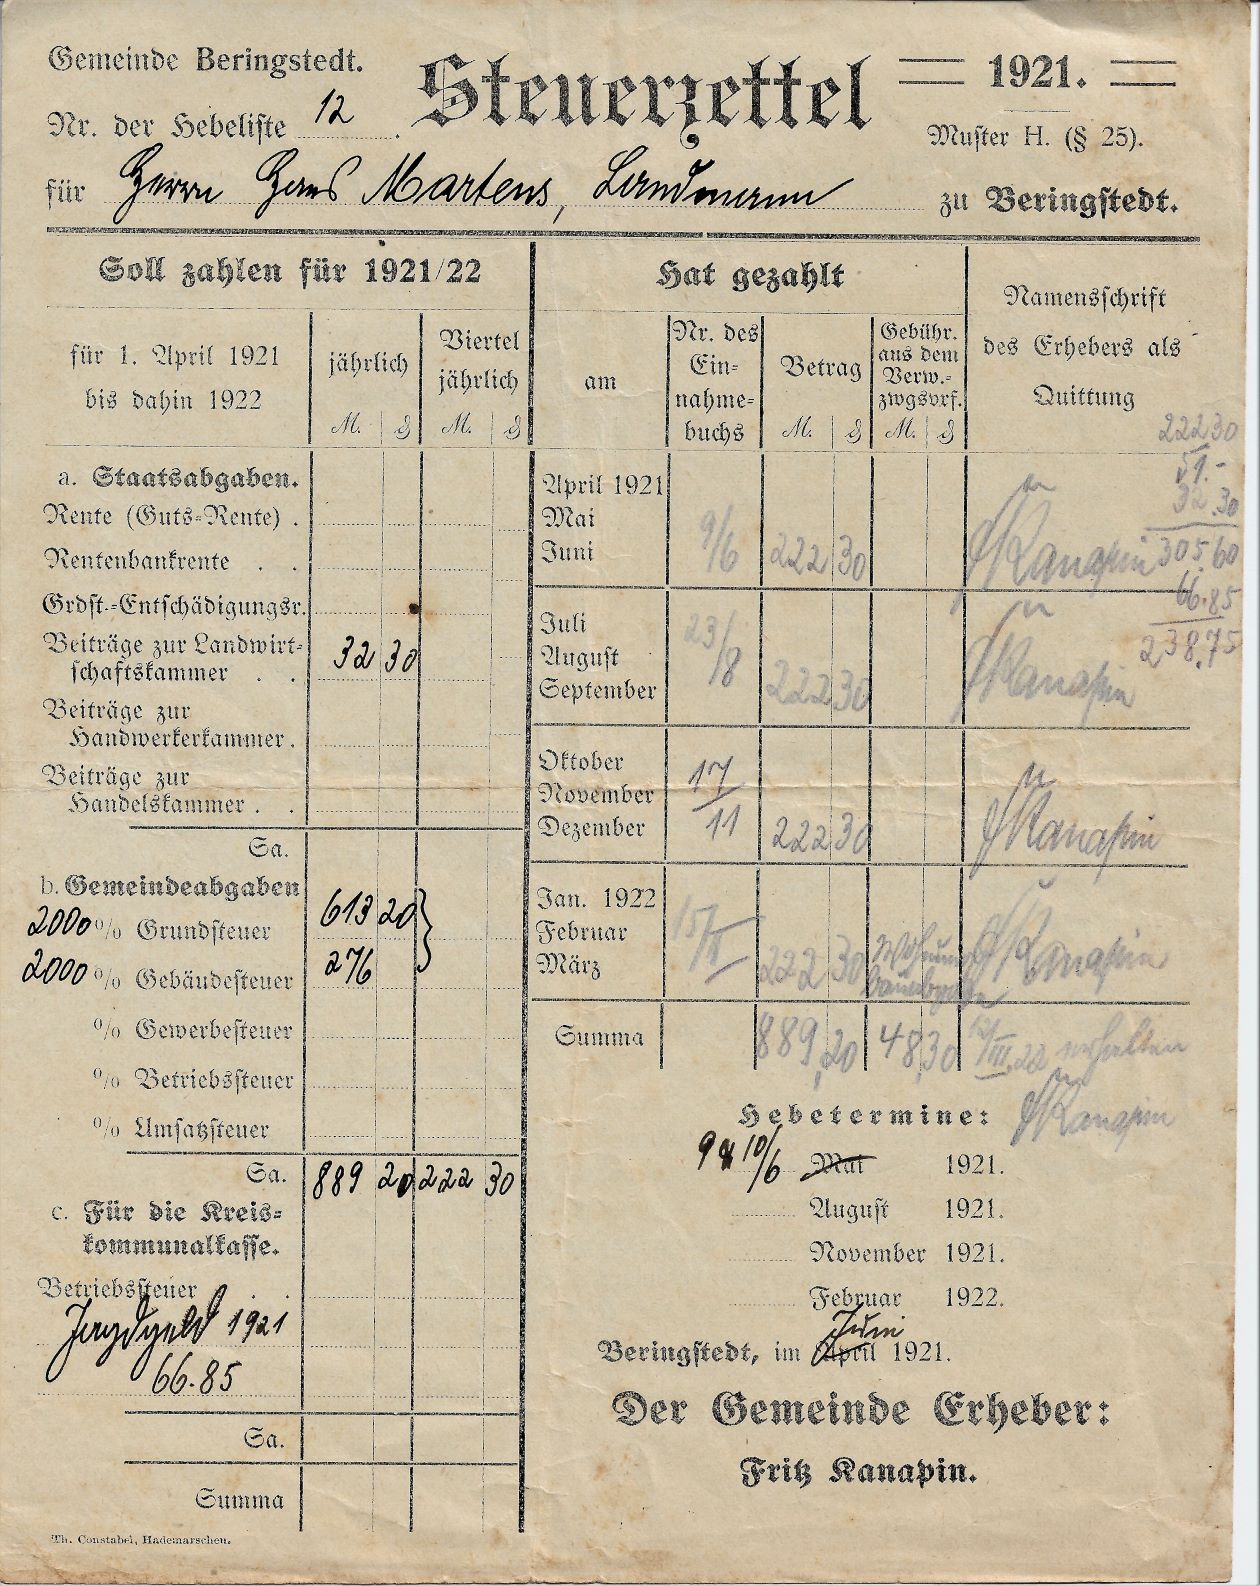 Gemeinde Beringstedt.
Steuerzettel
1921.
Nr. der Hebeliste 12.
Muster H. (§ 25).
für Herrn Hans Martens, Landmann zu Beringstedt.
Soll zahlen für 1921/22
Hat gezahlt
Namensschrift
des Erhebers als
Quittung
für 1. April 1921
bis dahin 1922
jährlich
M. ₰
Viertel
jährlich
M. ₰
am
Nr. des
Ein-
nahme-
buchs
Betrag
M. ₰
Gebühr.
aus dem
Verw.-
zwgsvrf.
M. ₰
222 30
51.-
32.30
305.60
66.85
238.75
a. Staatsabgaben.
Rente (Guts-Rente) .
Rentenbankrente . .
Grdst.-Entschädigungsr.
Beiträge zur Landwirt-
schaftskammer . . 32 30
Beiträge zur
Handwerkerkammer .
Beiträge zur
Handelskammer . .
Sa.
b. Gemeindeabgaben
2000 % Grundsteuer 613 20
2000 % Gebäudesteuer 276
% Gewerbesteuer
% Betriebssteuer
% Umsatzsteuer
Sa. 889 20 222 30
c. Für die Kreis-
kommunalkasse.
Betriebssteuer . .
Jagdgeld 1921
66.85
Sa.
Summa
Th. Constabel, Hademarschen.
April 1921
Mai
Juni 9/6 222 30 FKanapin
Juli
August
September 23/8 222 30 FKanapin
Oktober
November
Dezember 17/11 222 30 FKanapin
Jan. 1922
Februar
März 222 30 FKanapin
Summa 889,20 48,30 erhalten
FKanapin
Hebetermine:
10/6 Mai 1921.
August 1921.
November 1921.
Februar 1922.
Juni
Beringstedt, im April 1921.
Der Gemeinde Erheber:
Fritz Kanapin.